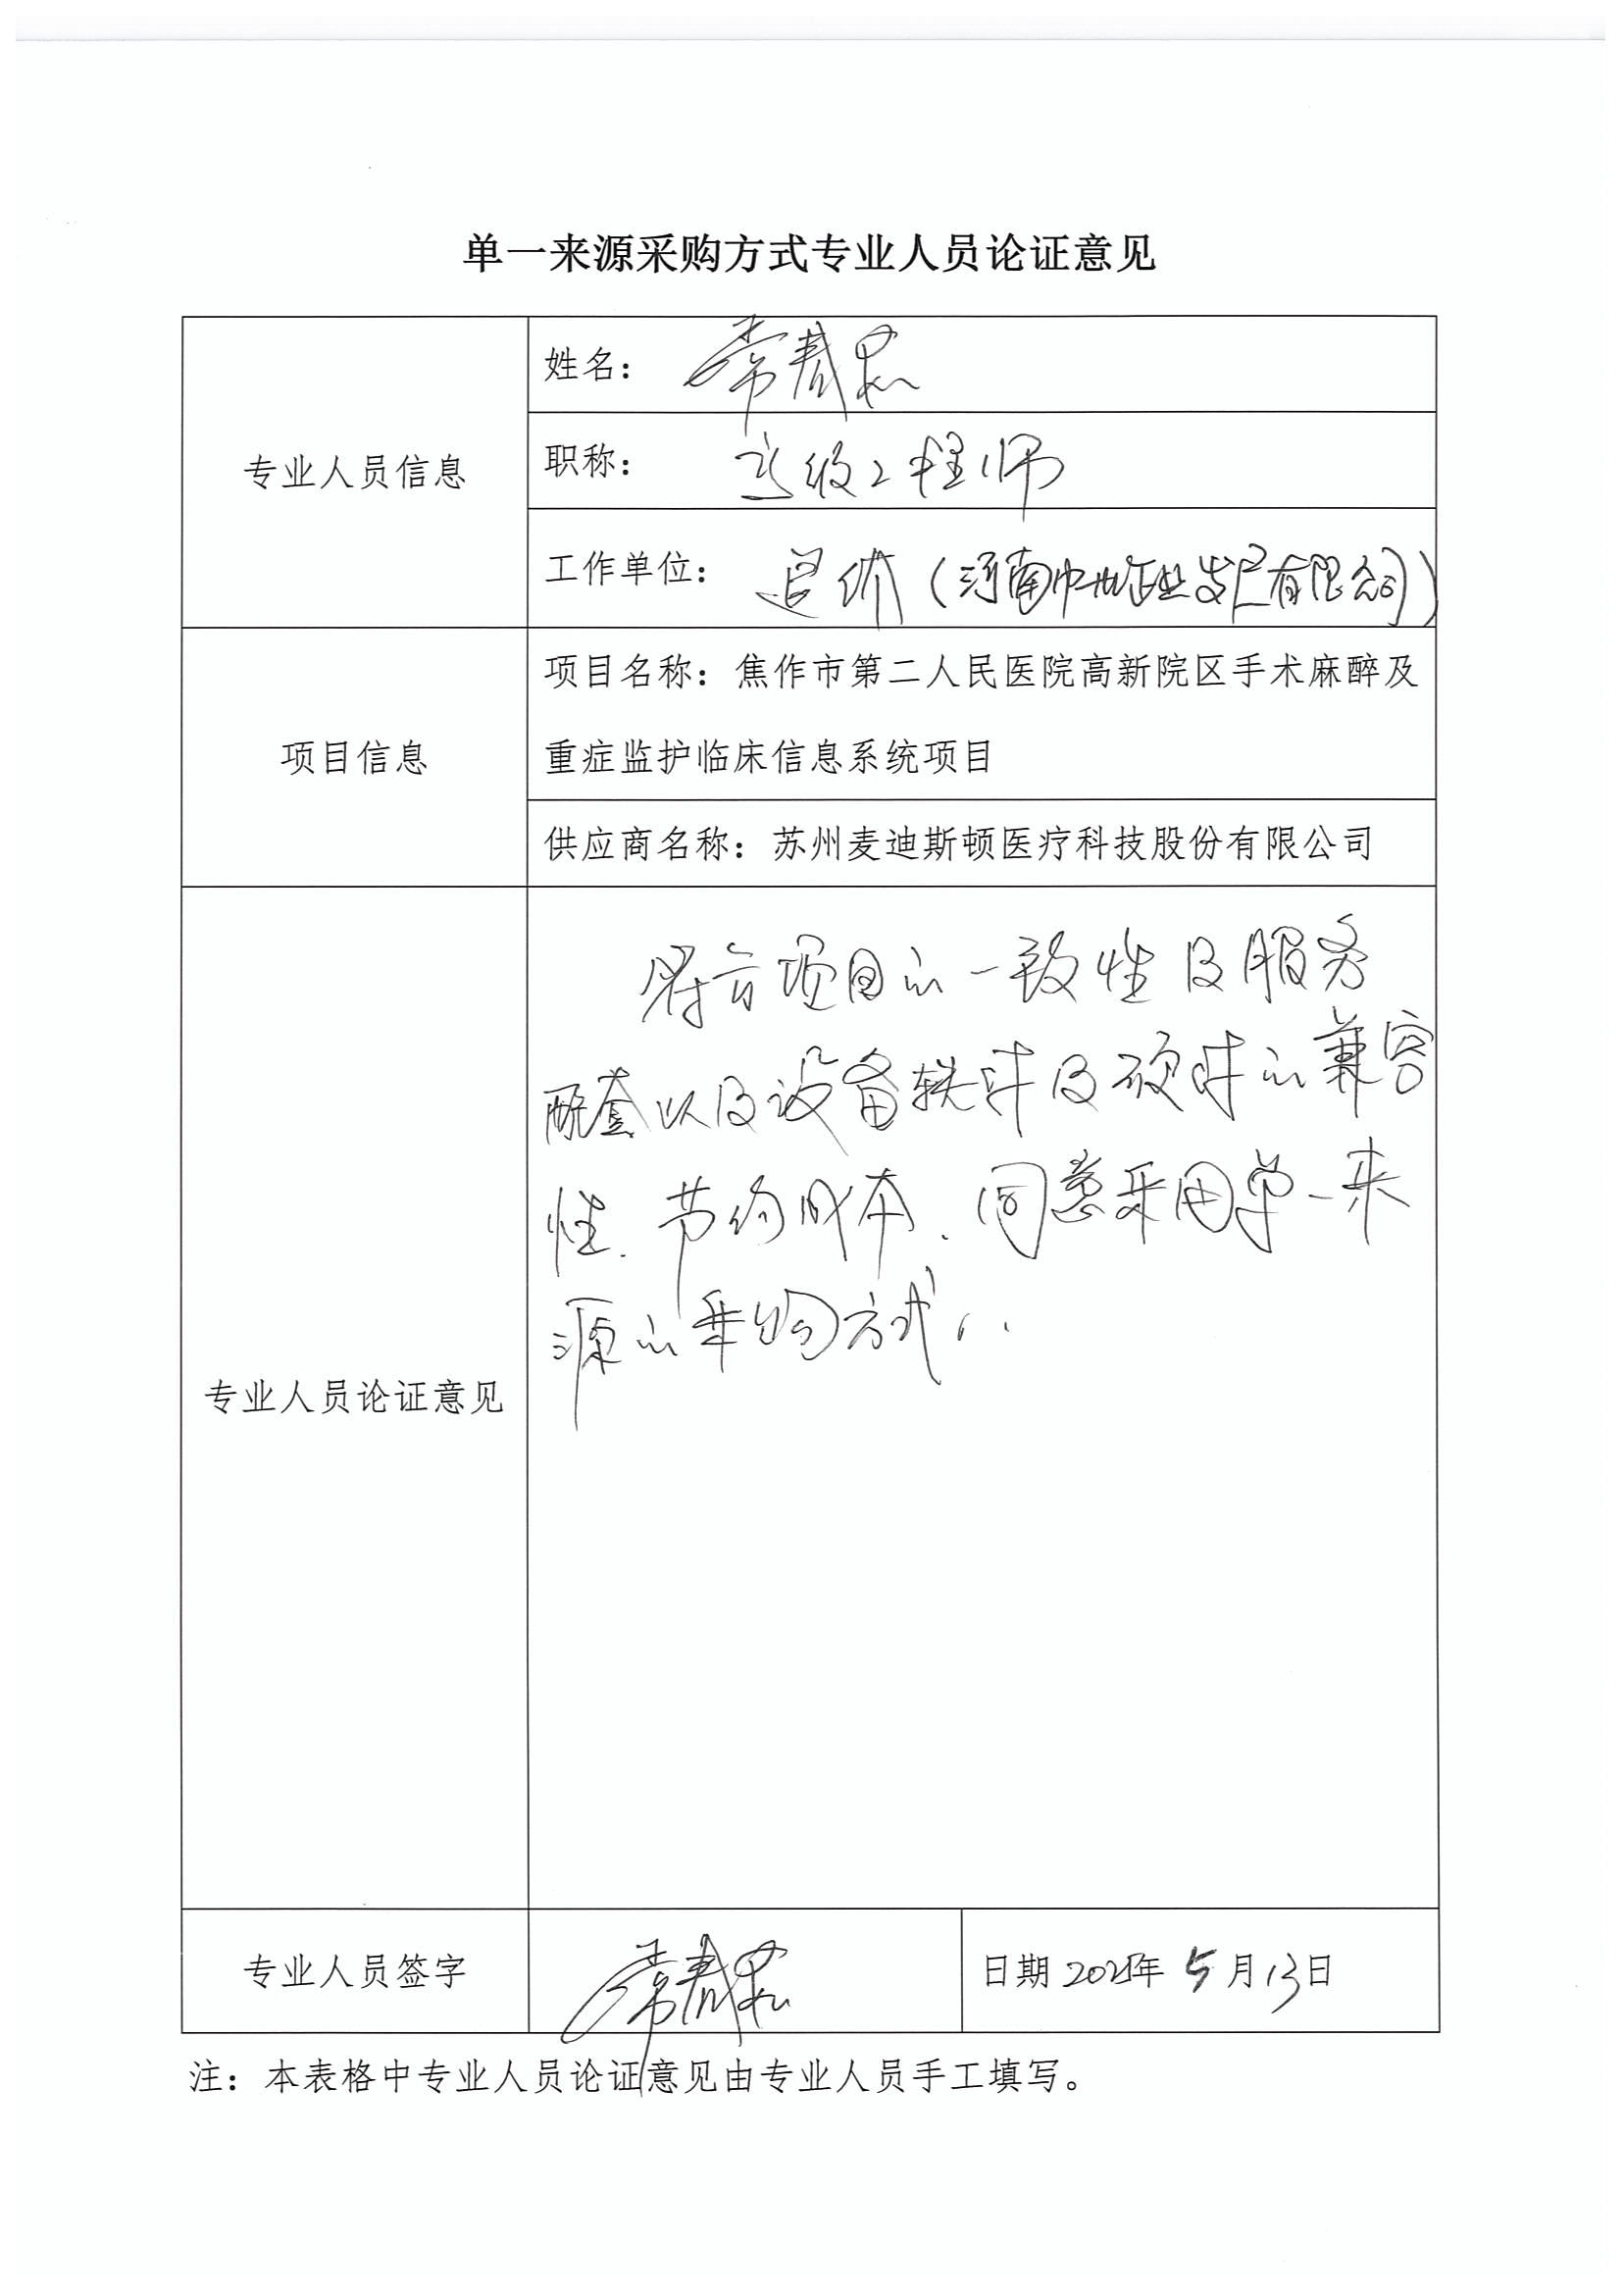 单一来源采购方式专业人员论证意见
专业人员信息
姓名：常春
职称：高级工程师
工作单位：退休（河南中业发展有限公司）
项目信息
项目名称：焦作市第二人民医院高新院区手术麻醉及
重症监护临床信息系统项目
供应商名称：苏州麦迪斯顿医疗科技股份有限公司
专业人员论证意见
符合项目的一致性及服务
配套以及设备软件及硬件的兼容
性、节约成本、同意采用单一来
源的采购方式。
专业人员签字
常春
日期 年 5 月 13 日
注：本表格中专业人员论证意见由专业人员手工填写。